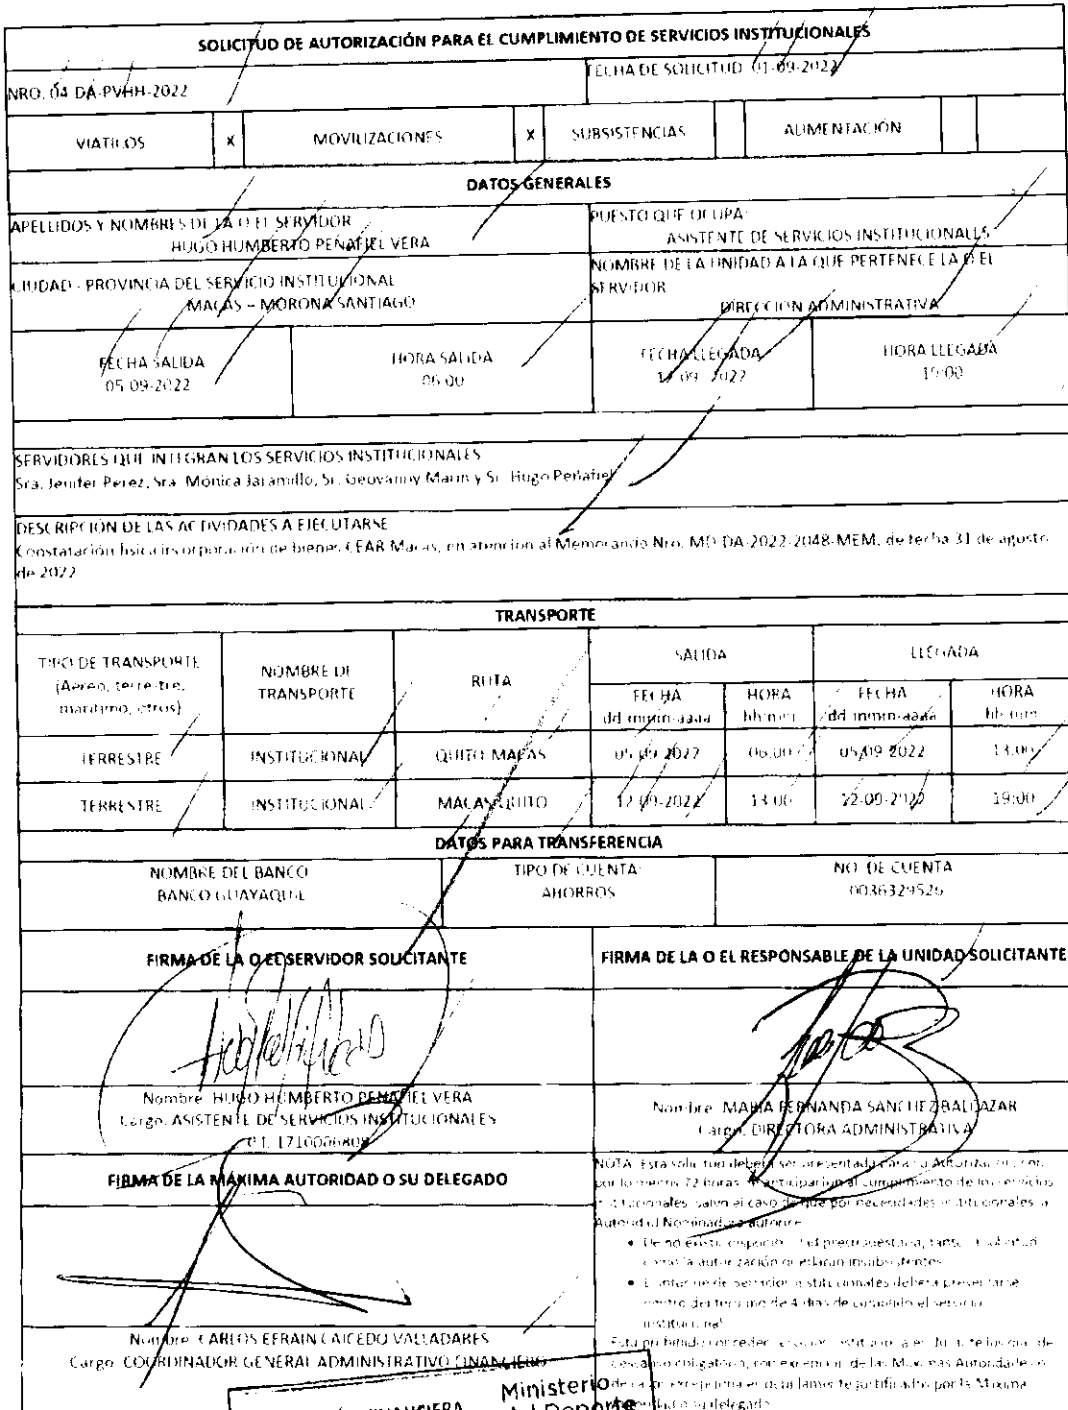 SOLICITUD DE AUTORIZACIÓN PARA EL CUMPLIMIENTO DE SERVICIOS INSTITUCIONALES
NRO. 04 DA-PVHH-2022
FECHA DE SOLICITUD 01-09-2022
VIATICOS x MOVILIZACIONES x SUBSISTENCIAS ALIMENTACIÓN
DATOS GENERALES
APELLIDOS Y NOMBRES DE LA O EL SERVIDOR
HUGO HUMBERTO PEÑAFIEL VERA
PUESTO QUE OCUPA:
ASISTENTE DE SERVICIOS INSTITUCIONALES
CIUDAD - PROVINCIA DEL SERVICIO INSTITUCIONAL
MACAS – MORONA SANTIAGO
NOMBRE DE LA UNIDAD A LA QUE PERTENECE LA O EL
SERVIDOR
DIRECCION ADMINISTRATIVA
FECHA SALIDA
05-09-2022
HORA SALIDA
06:00
FECHA LLEGADA
12-09-2022
HORA LLEGADA
19:00
SERVIDORES QUE INTEGRAN LOS SERVICIOS INSTITUCIONALES
Sra. Jenifer Perez, Sra. Mónica Jaramillo, Sr. Geovanny Marin y Sr. Hugo Peñafiel
DESCRIPCIÓN DE LAS ACTIVIDADES A EJECUTARSE
Constatación física incorporación de bienes CEAR Macas, en atención al Memorando Nro. MD-DA-2022-2048-MEM, de fecha 31 de agosto
de 2022
TRANSPORTE
TIPO DE TRANSPORTE
(Aéreo, terrestre,
marítimo, otros)
NOMBRE DE
TRANSPORTE
RUTA
SALIDA
LLEGADA
FECHA
dd-mmm-aaaa
HORA
hh:mm
FECHA
dd-mmm-aaaa
HORA
hh:mm
TERRESTRE INSTITUCIONAL QUITO-MACAS 05-09-2022 06:00 05-09-2022 13:00
TERRESTRE INSTITUCIONAL MACAS-QUITO 12-09-2022 13:00 12-09-2022 19:00
DATOS PARA TRANSFERENCIA
NOMBRE DEL BANCO
BANCO GUAYAQUIL
TIPO DE CUENTA:
AHORROS
NO. DE CUENTA
0036329526
FIRMA DE LA O EL SERVIDOR SOLICITANTE
FIRMA DE LA O EL RESPONSABLE DE LA UNIDAD SOLICITANTE
Nombre: HUGO HUMBERTO PEÑAFIEL VERA
Cargo: ASISTENTE DE SERVICIOS INSTITUCIONALES
Nombre: MARIA FERNANDA SANCHEZ BALCAZAR
Cargo: DIRECTORA ADMINISTRATIVA
FIRMA DE LA MÁXIMA AUTORIDAD O SU DELEGADO
NOTA: Esta solicitud deberá ser presentada para su Autorización, con
por lo menos 72 horas de anticipación al cumplimiento de los servicios
institucionales, salvo el caso de que por necesidades institucionales la
Autoridad Nominadora autorice
• De no existir disponibilidad presupuestaria, tanto la solicitud
como la autorización quedarán insubsistentes
• El informe de servicios institucionales deberá presentarse
dentro del término de 4 días de cumplido el servicio
institucional
Está prohibido conceder servicios institucionales durante los días de
descanso obligatorio, con excepción de las Máximas Autoridades o
de casos excepcionales debidamente justificados por la Máxima
Autoridad o su delegado
Nombre: CARLOS EFRAIN CAICEDO VALLADARES
Cargo: COORDINADOR GENERAL ADMINISTRATIVO FINANCIERO
Ministerio
del Deporte
FINANCIERA